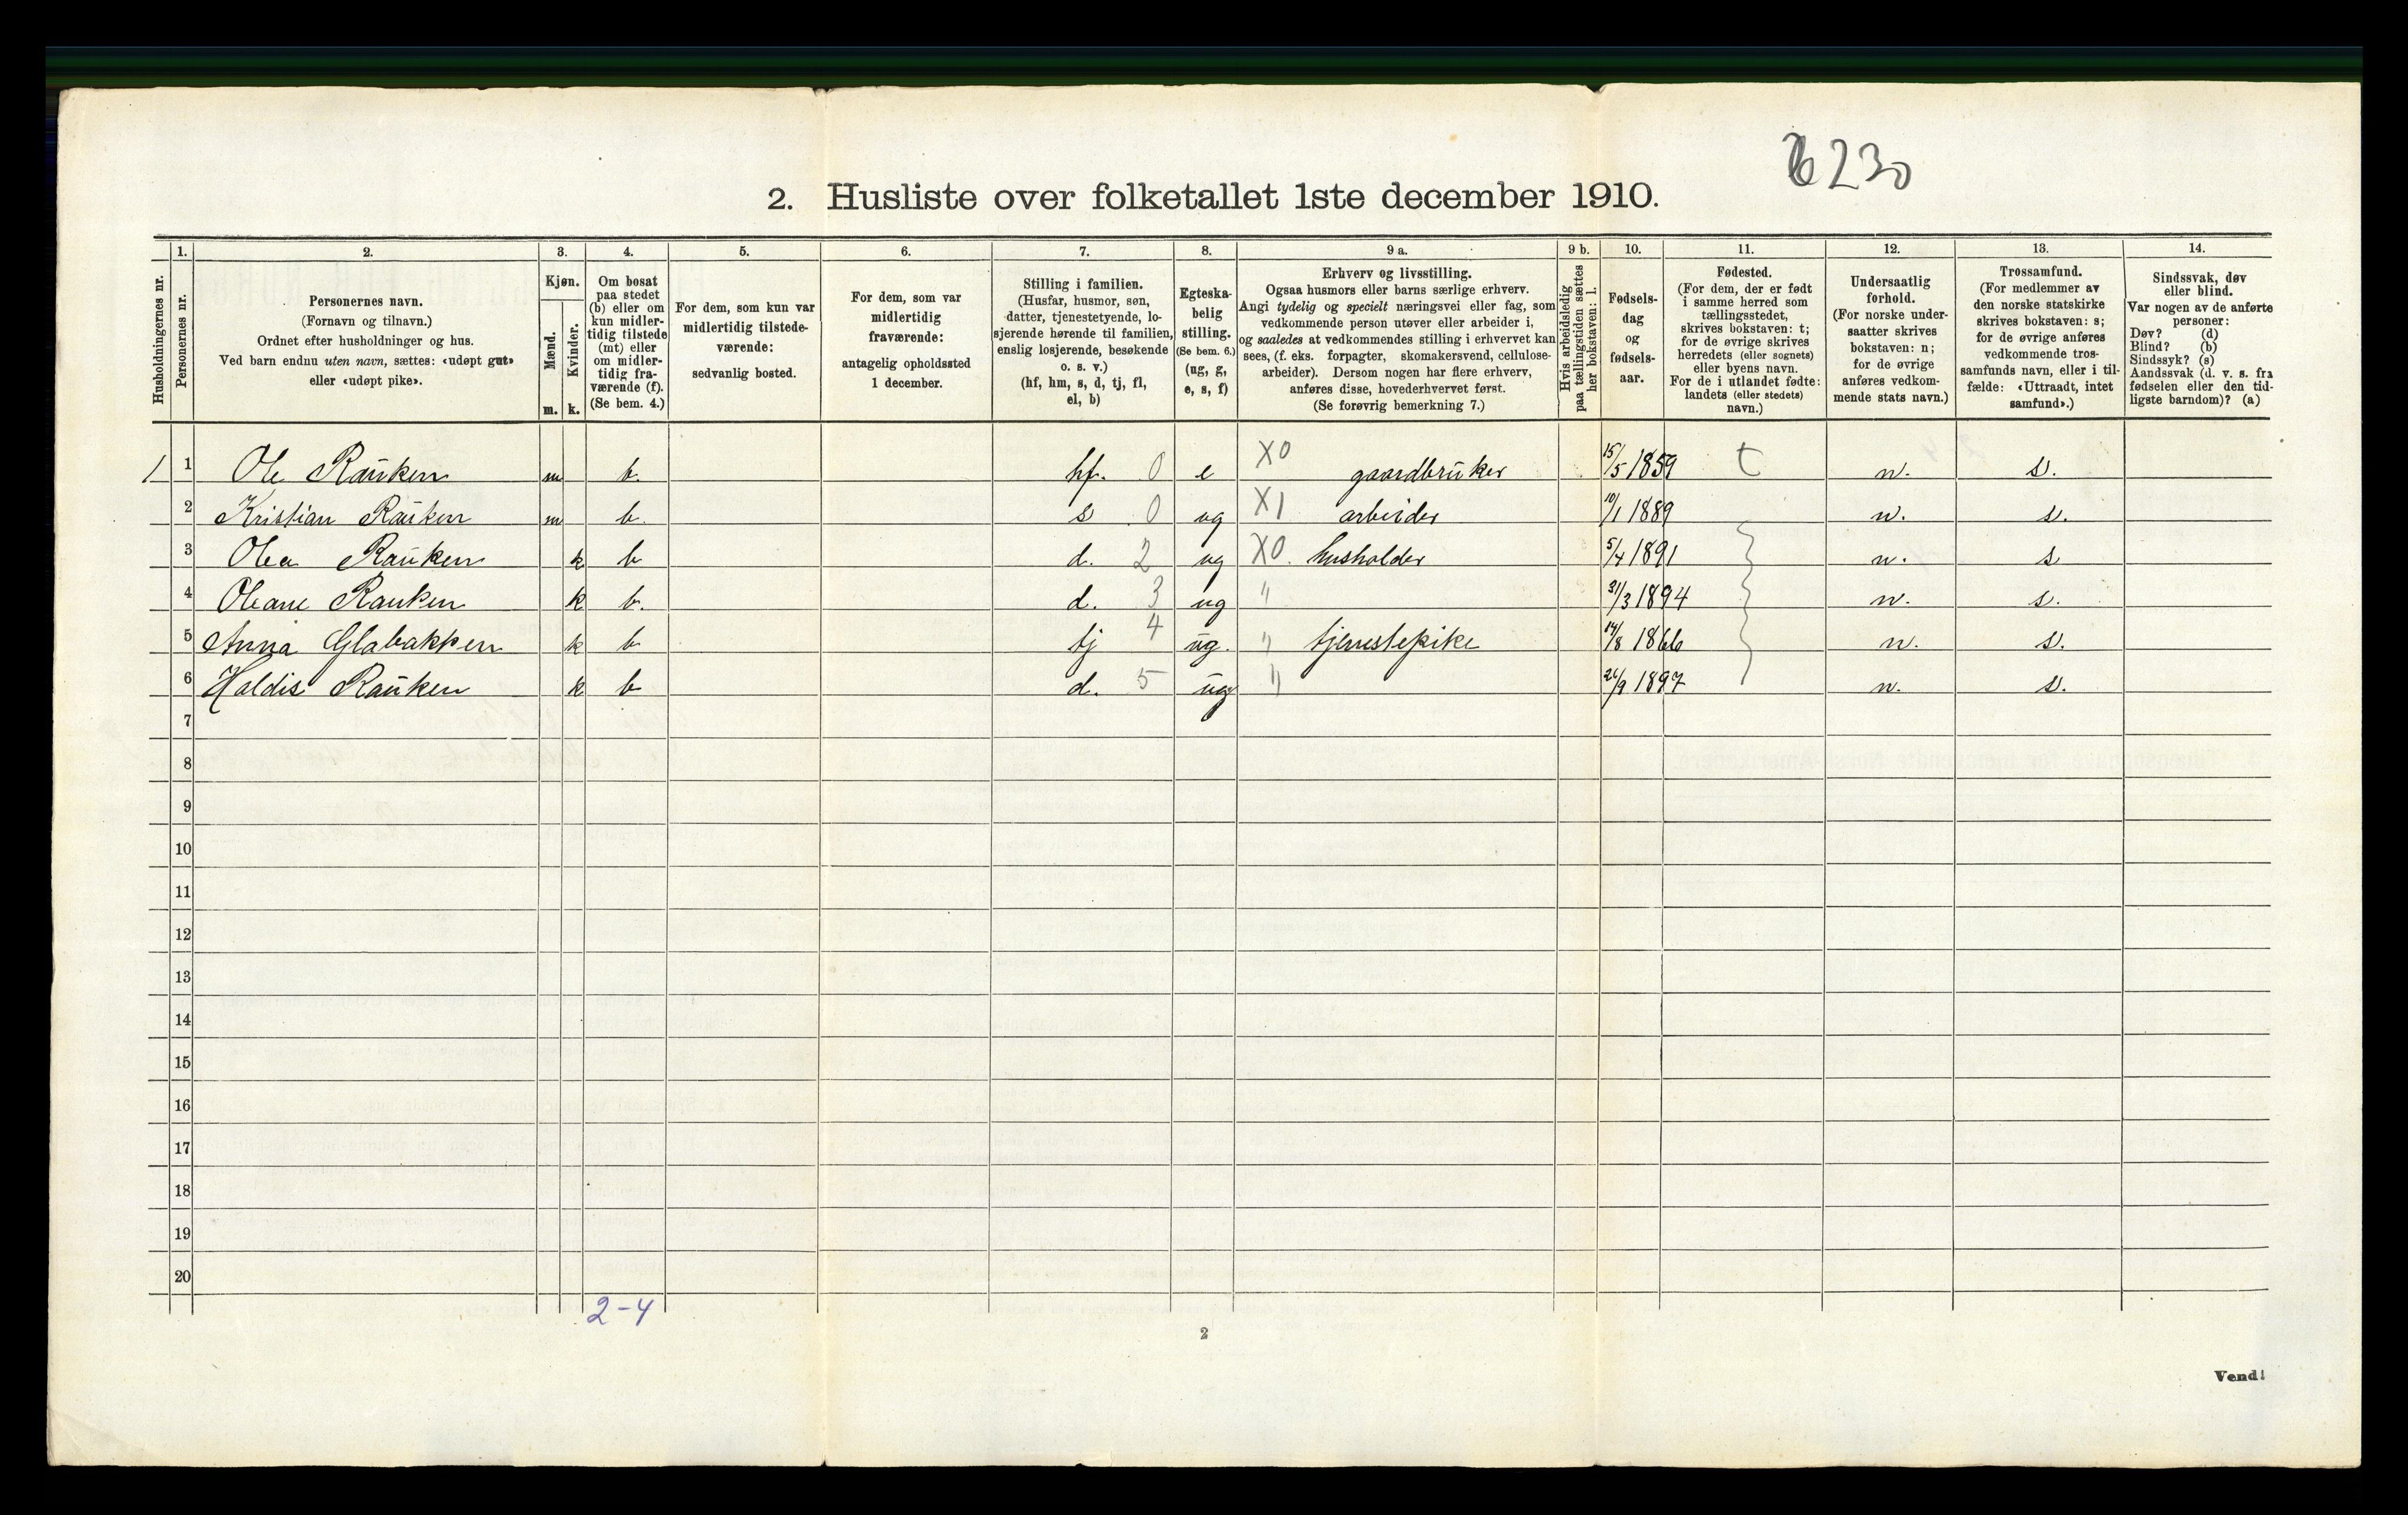 6230
2. Husliste over folketallet 1ste december 1910.
Husholdningernes nr.
1. Personernes nr.
2. Personernes navn.
(Fornavn og tilnavn.)
Ordnet efter husholdninger og hus.
Ved barn endnu uten navn, sættes: «udøpt gut»
eller «udøpt pike».
3. Kjøn.
Mænd. m.
Kvinder. k.
4. Om bosat
paa stedet
(b) eller om
kun midler-
tidig tilstede
(mt) eller
om midler-
tidig fra-
værende (f).
(Se bem. 4.)
5. For dem, som kun var
midlertidig tilstede-
værende:
sedvanlig bosted.
6. For dem, som var
midlertidig
fraværende:
antagelig opholdssted
1 december.
7. Stilling i familien.
(Husfar, husmor, søn,
datter, tjenestetyende, lo-
sjerende hørende til familien,
enslig losjerende, besøkende
o. s. v.)
(hf, hm, s, d, tj, fl,
el, b)
8. Egteska-
belig
stilling.
(Se bem. 6.)
(ug, g,
e, s, f)
9 a. Erhverv og livsstilling.
Ogsaa husmors eller barns særlige erhverv.
Angi tydelig og specielt næringsvei eller fag, som
vedkommende person utøver eller arbeider i,
og saaledes at vedkommendes stilling i erhvervet kan
sees, (f. eks. forpagter, skomakersvend, cellulose-
arbeider). Dersom nogen har flere erhverv,
anføres disse, hovederhvervet først.
(Se forøvrig bemerkning 7.)
9 b. Hvis arbeidsledig
paa tællingstiden sættes
her bokstaven: l.
10. Fødsels-
dag
og
fødsels-
aar.
11. Fødested.
(For dem, der er født
i samme herred som
tællingsstedet,
skrives bokstaven: t;
for de øvrige skrives
herredets (eller sognets)
eller byens navn.
For de i utlandet fødte:
landets (eller stedets)
navn.)
12. Undersaatlig
forhold.
(For norske under-
saatter skrives
bokstaven: n;
for de øvrige
anføres vedkom-
mende stats navn.)
13. Trossamfund.
(For medlemmer av
den norske statskirke
skrives bokstaven: s;
for de øvrige anføres
vedkommende tros-
samfunds navn, eller i til-
fælde: «Uttraadt, intet
samfund».)
14. Sindssvak, døv
eller blind.
Var nogen av de anførte
personer:
Døv? (d)
Blind? (b)
Sindssyk? (s)
Aandssvak (d. v. s. fra
fødselen eller den tid-
ligste barndom)? (a)
1 1 Ole Rauken m b. hf. 0 e X0 gaardbruker 15/5 1859 t n. s.
2 Kristian Rauken m b. s 0 ug X1 arbeider 10/1 1889 n. s.
3 Olea Rauken k b d. 2 ug X0. husholder 5/4 1891 n. s
4 Oleane Rauken k b. d. 3 ug " 31/3 1894 n. s.
5 Anna Glabakken k b tj 4 ug. " tjenestepike 14/8 1866 n. s.
6 Haldis Rauken k b d. 5 ug " 26/9 1897 n. s.
7
8
9
10
11
12
13
14
15
16
17
18
19
20
2-4
2
Vend!